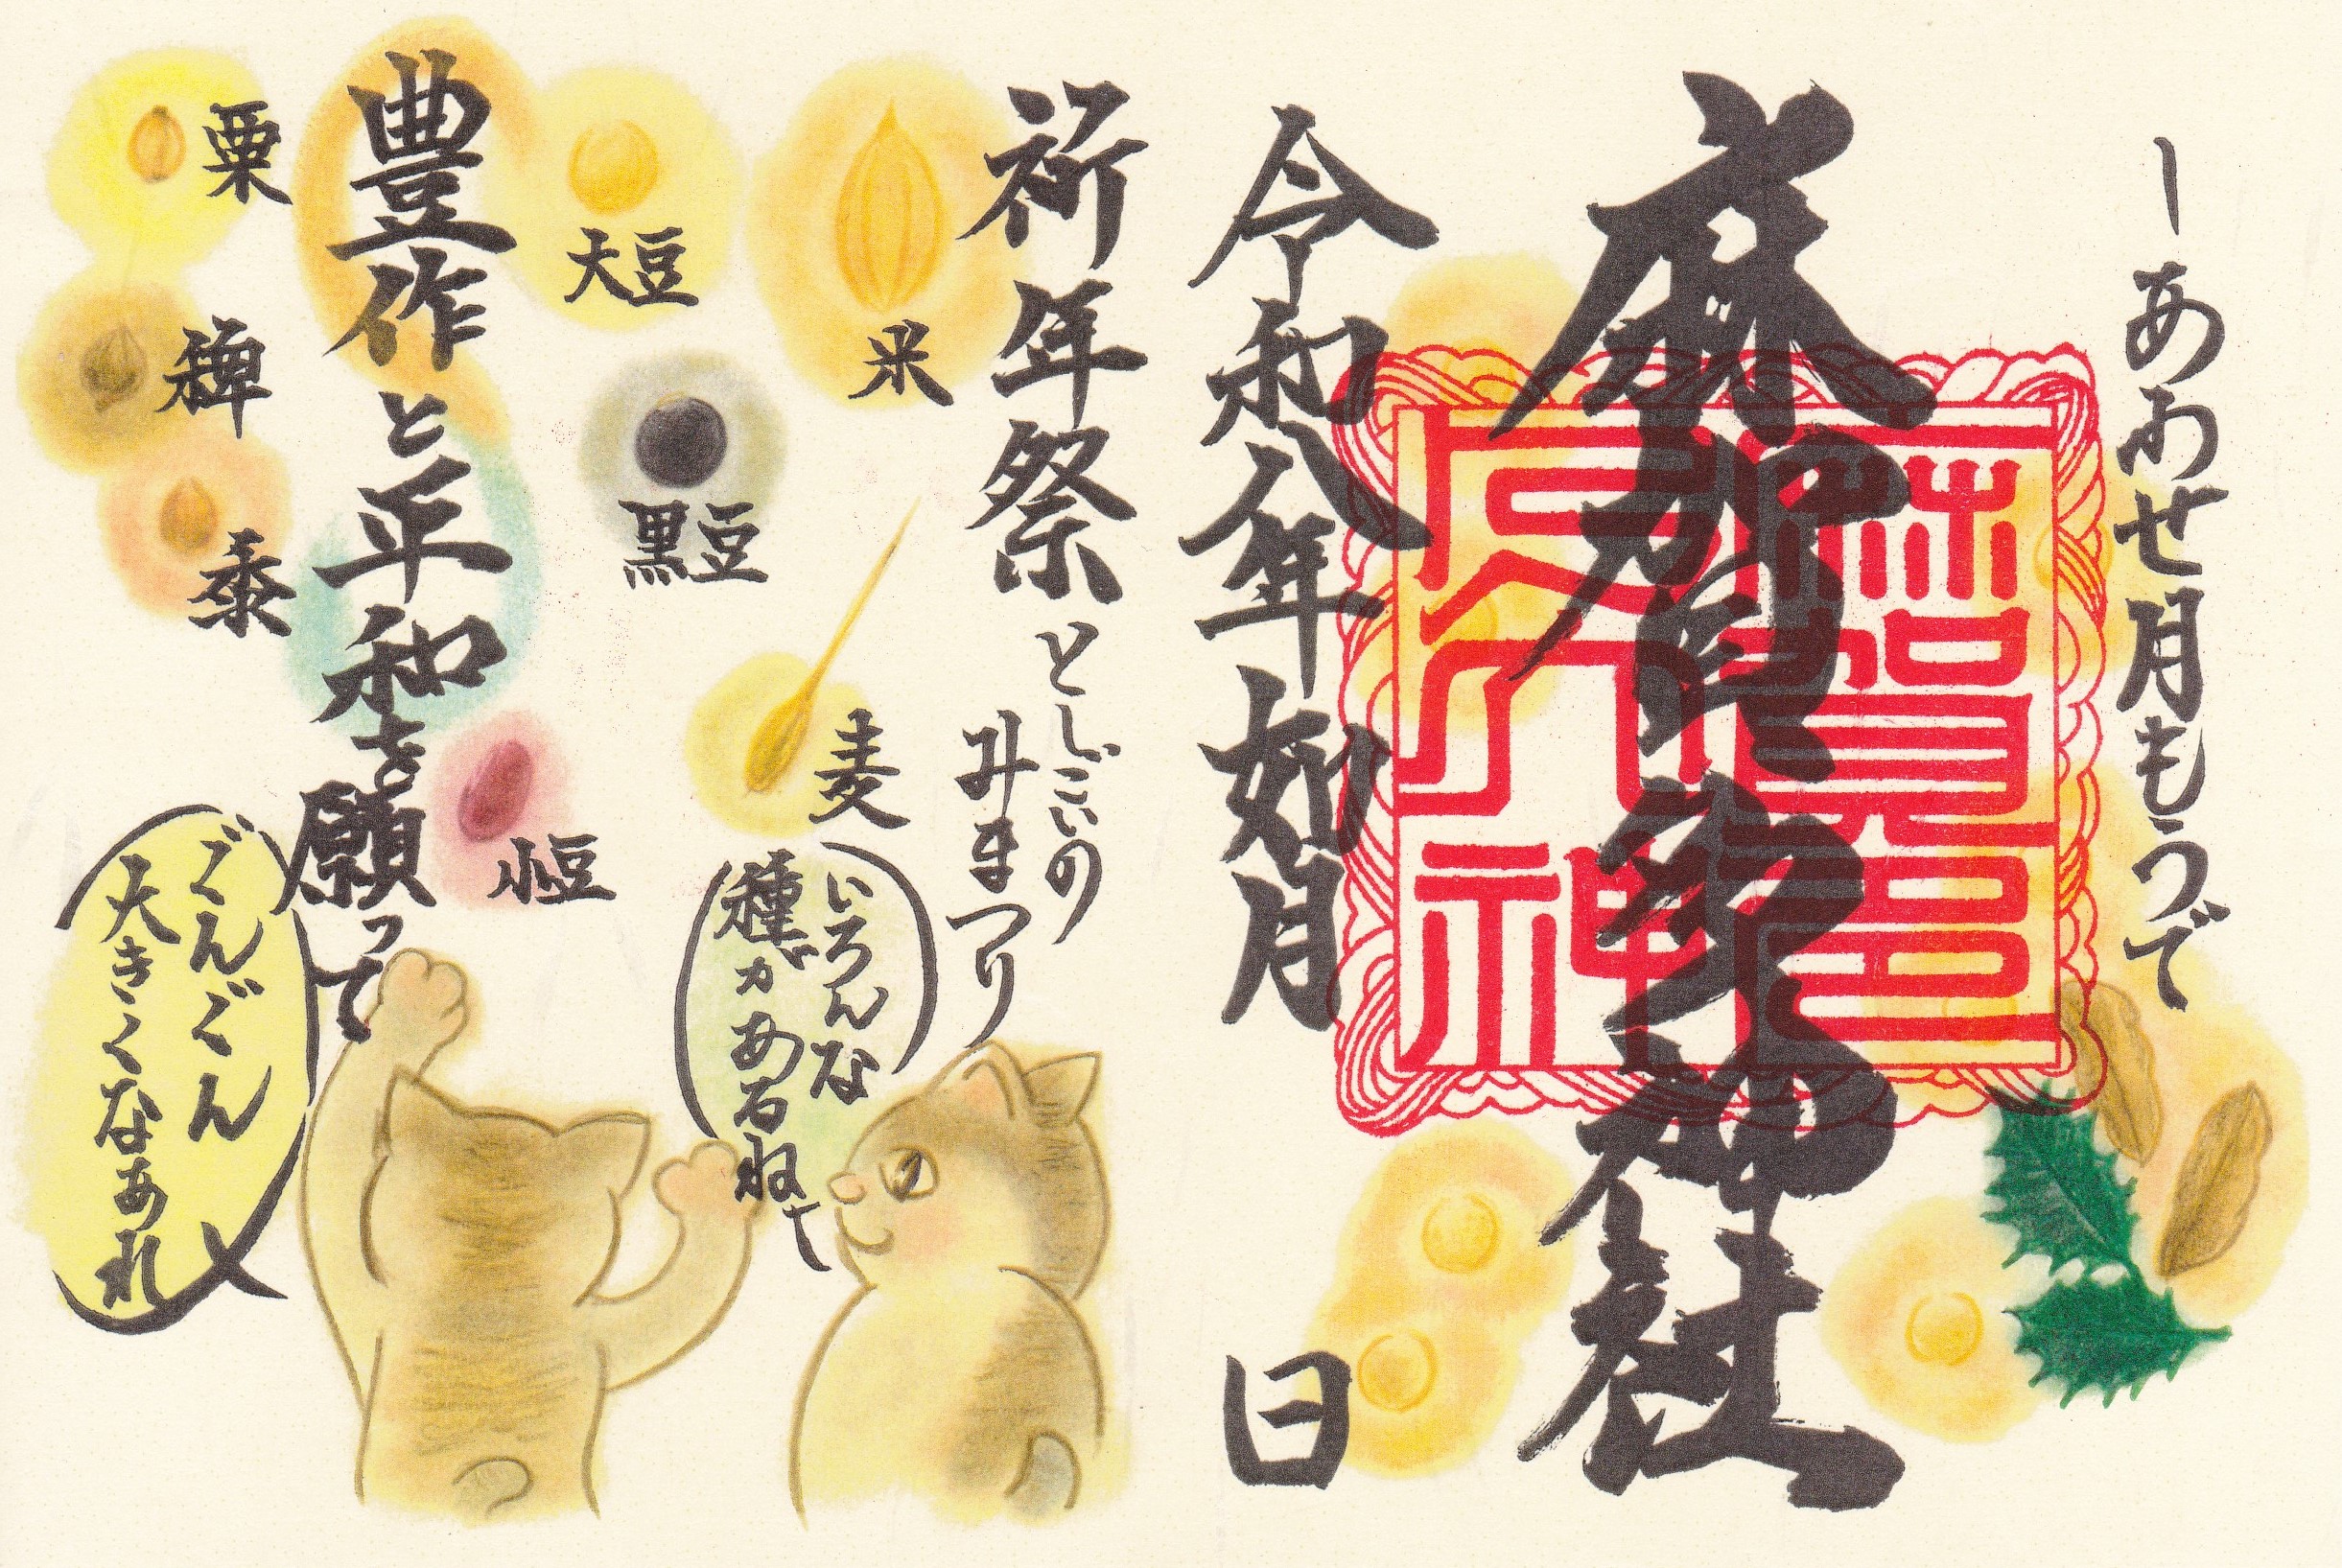 しあわせ月もうで
麻賀多神社
令和八年 如月 日
祈年祭
としごいの
みまつり
米
大豆
黒豆
麦
小豆
いろんな
種があるね
豊作と平和を願って
粟
稗
黍
ぐんぐん
大きくなあれ